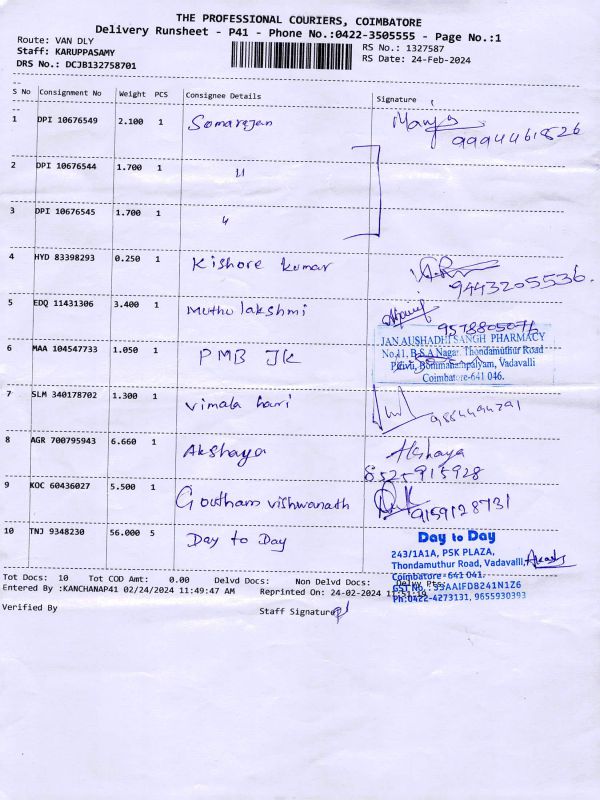 THE PROFESSIONAL COURIERS, COIMBATORE
Delivery Runsheet - P41 - Phone No.:0422-3505555 - Page No.:1
Route: VAN DLY
RS No.: 1327587
Staff: KARUPPASAMY
RS Date: 24-Feb-2024
DRS No.: DCJB132758701
S No Consignment No Weight PCS Consignee Details Signature
1 DPI 10676549 2.100 1 Somarajan Manju 9994461826
2 DPI 10676544 1.700 1 "
3 DPI 10676545 1.700 1 "
4 HYD 83398293 0.250 1 Kishore kumar 9443205536.
5 EDQ 11431306 3.400 1 Muthu lakshmi 9578805076
6 MAA 104547733 1.050 1 PMB JK
JAN AUSHADHI SANGH PHARMACY
No.11, B.S.A Nagar, Thondamuthur Road
Pirivu, Bommanampalayam, Vadavalli
Coimbatore-641 046.
7 SLM 340178702 1.300 1 Vimala hari
8 AGR 700795943 6.660 1 Akshaya Akshaya
8525915928
9 KOC 60436027 5.500 1 Goutham vishwanath 9159128731
10 TNJ 9348230 56.000 5 Day to Day
Day to Day
243/1A1A, PSK PLAZA,
Thondamuthur Road, Vadavalli,
Coimbatore-641 041.
GST No.: 33AAIFD8241N1Z6
Ph:0422-4273131, 9655930393
Tot Docs: 10 Tot COD Amt: 0.00 Delvd Docs: Non Delvd Docs: Delvy Pts:
Entered By :KANCHANAP41 02/24/2024 11:49:47 AM Reprinted On: 24-02-2024 11:51:19
Verified By Staff Signature